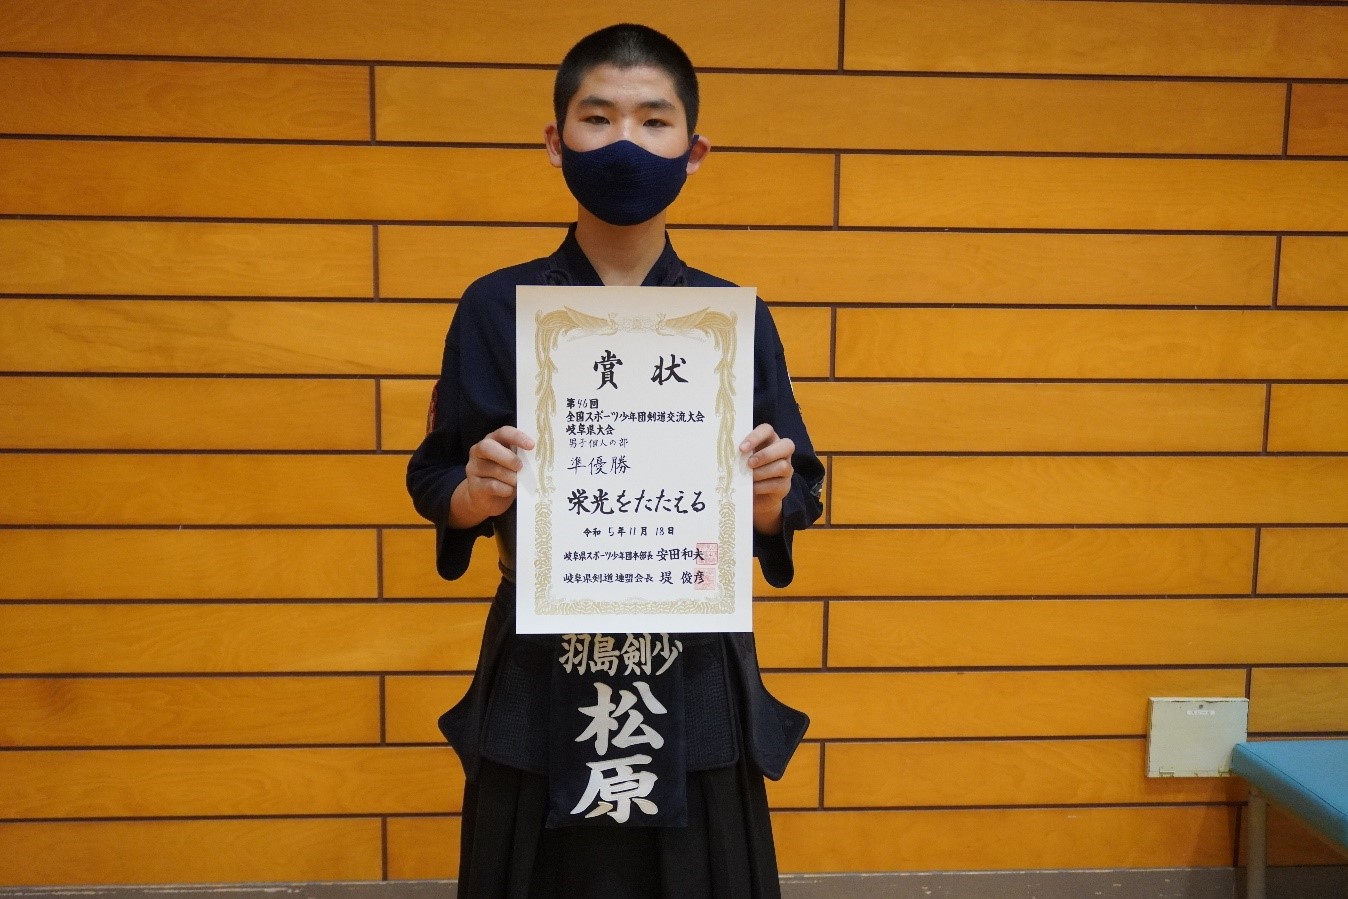 賞状
第46回
全国スポーツ少年団剣道交流大会
岐阜県大会
男子個人の部
準優勝
栄光をたたえる
令和5年11月18日
岐阜県スポーツ少年団本部長 安田和夫
岐阜県剣道連盟会長 堤俊彦
羽島剣少
松原